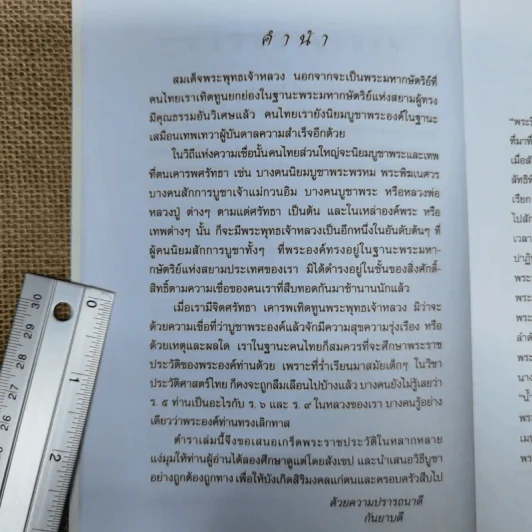 คำนำ
สมเด็จพระพุทธเจ้าหลวง นอกจากจะเป็นพระมหากษัตริย์ที่
คนไทยเราเทิดทูนยกย่องในฐานะพระมหากษัตริย์แห่งสยามผู้ทรง
มีคุณธรรมอันวิเศษแล้ว คนไทยเรายังนิยมบูชาพระองค์ในฐานะ
เสมือนเทพเทวาผู้บันดาลความสำเร็จอีกด้วย
ในวิถีแห่งความเชื่อนั้นคนไทยส่วนใหญ่จะนิยมบูชาพระและเทพ
ที่ตนเคารพศรัทธา เช่น บางคนนิยมบูชาพระพรหม พระพิฆเนศวร
บางคนสักการบูชาเจ้าแม่กวนอิม บางคนบูชาพระ หรือหลวงพ่อ
หลวงปู่ ต่างๆ ตามแต่ศรัทธา เป็นต้น และในเหล่าองค์พระ หรือ
เทพต่างๆ นั้น ก็จะมีพระพุทธเจ้าหลวงเป็นอีกหนึ่งในอันดับต้นๆ ที่
ผู้คนนิยมสักการบูชาทั้งๆ ที่พระองค์ทรงอยู่ในฐานะพระมหา-
กษัตริย์แห่งสยามประเทศของเรา มิได้ดำรงอยู่ในชั้นของสิ่งศักดิ์-
สิทธิ์ตามความเชื่อของคนเราที่สืบทอดกันมาช้านานนักแล้ว
เมื่อเรามีจิตศรัทธา เคารพเทิดทูนพระพุทธเจ้าหลวง มิว่าจะ
ด้วยความเชื่อที่ว่าบูชาพระองค์แล้วจักมีความสุขความรุ่งเรือง หรือ
ด้วยเหตุและผลใด เราในฐานะคนไทยก็สมควรที่จะศึกษาพระราช
ประวัติของพระองค์ท่านด้วย เพราะที่ร่ำเรียนมาสมัยเด็กๆ ในวิชา
ประวัติศาสตร์ไทย ก็คงจะถูกลืมเลือนไปบ้างแล้ว บางคนยังไม่รู้เลยว่า
ร. ๕ ท่านเป็นอะไรกับ ร. ๖ และ ร. ๙ ในหลวงของเรา บางคนรู้อย่าง
เดียวว่าพระองค์ท่านทรงเลิกทาส
ตำราเล่มนี้จึงขอเสนอเกร็ดพระราชประวัติในหลากหลาย
แง่มุมให้ท่านผู้อ่านได้ลองศึกษาดูแต่โดยสังเขป และนำเสนอวิธีบูชา
อย่างถูกต้องถูกทาง เพื่อให้บังเกิดสิริมงคลแก่ตนและครอบครัวสืบไป
ด้วยความปรารถนาดี
กันยาบดี
0
1
2
30
29
28
27
26
25
24